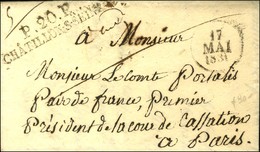 P.20.P.
CHÂTILLON-S-
à Monsieur
17
MAI
1831
Monsieur Le Comte Portalis
Pair de france, Premier
Président de la cour de Cassation
à Paris.